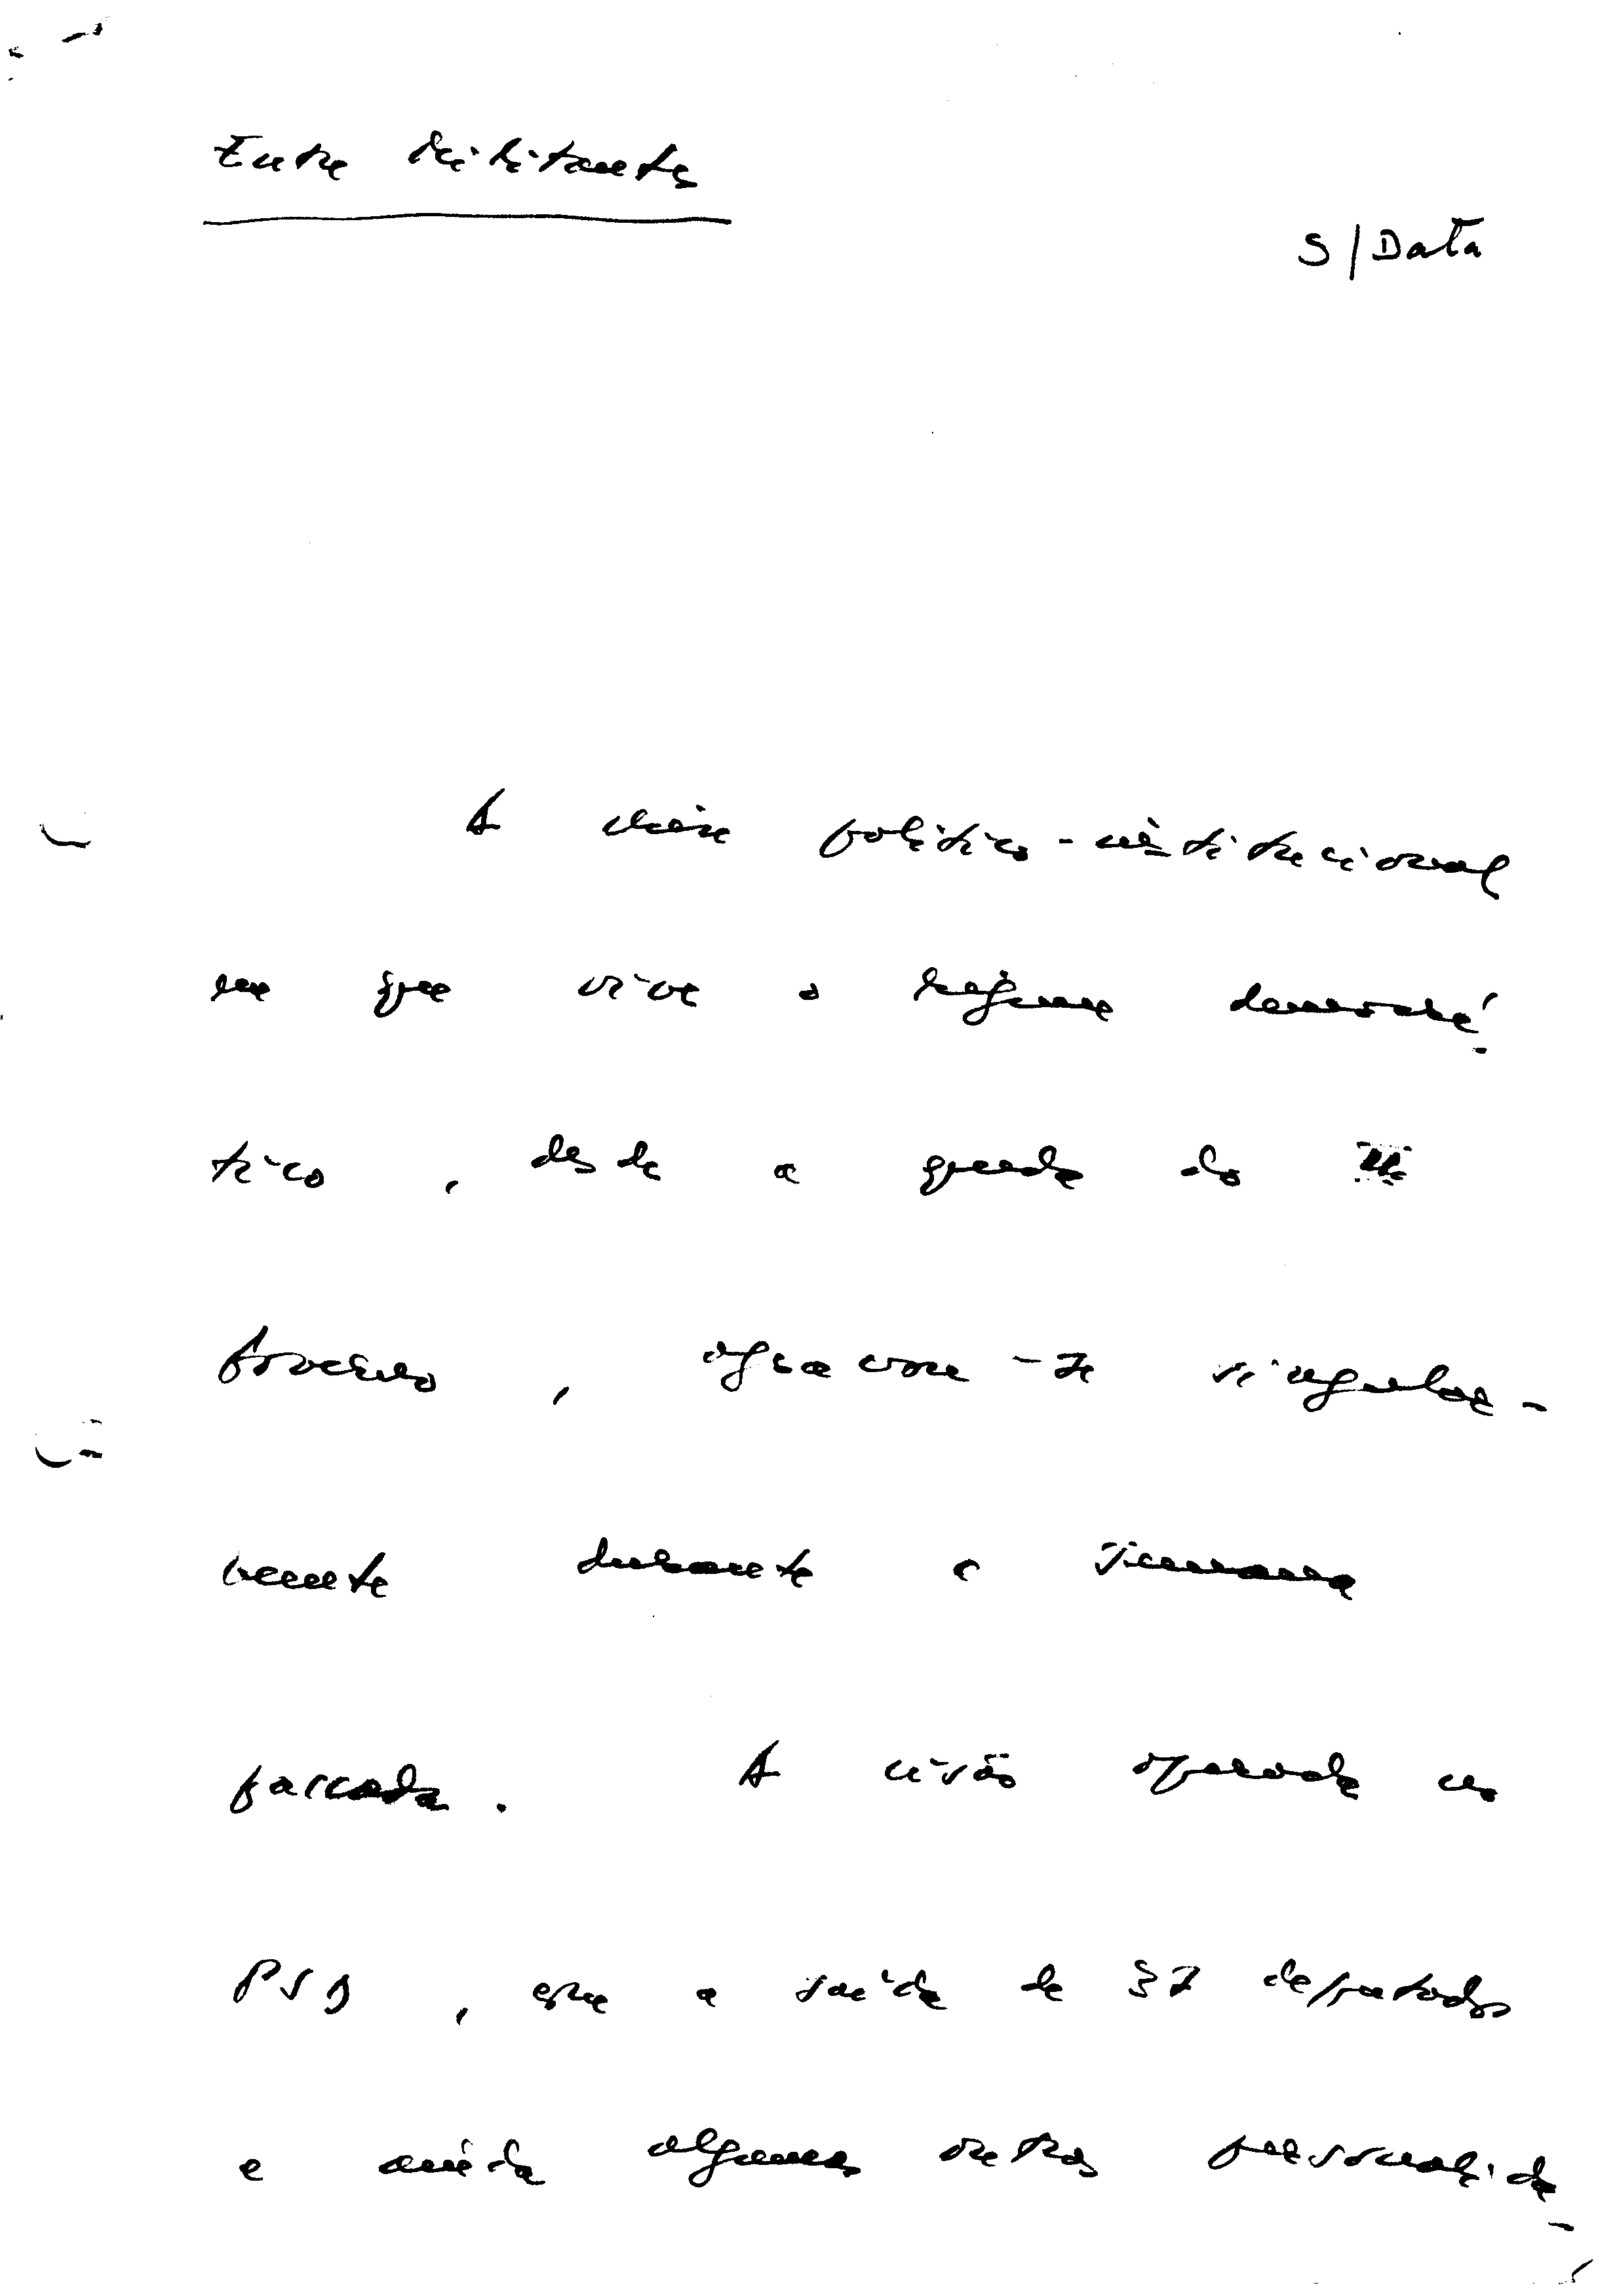 Entre Militantes
S/Data
A crise político-institucional
em que vive o regime democrá-
tico, desde a queda do III
Governo, agravou-se singular-
mente durante a semana
passada. A cisão operada no
PSD, com a saída de 37 deputados
e ainda algumas outras personalida-